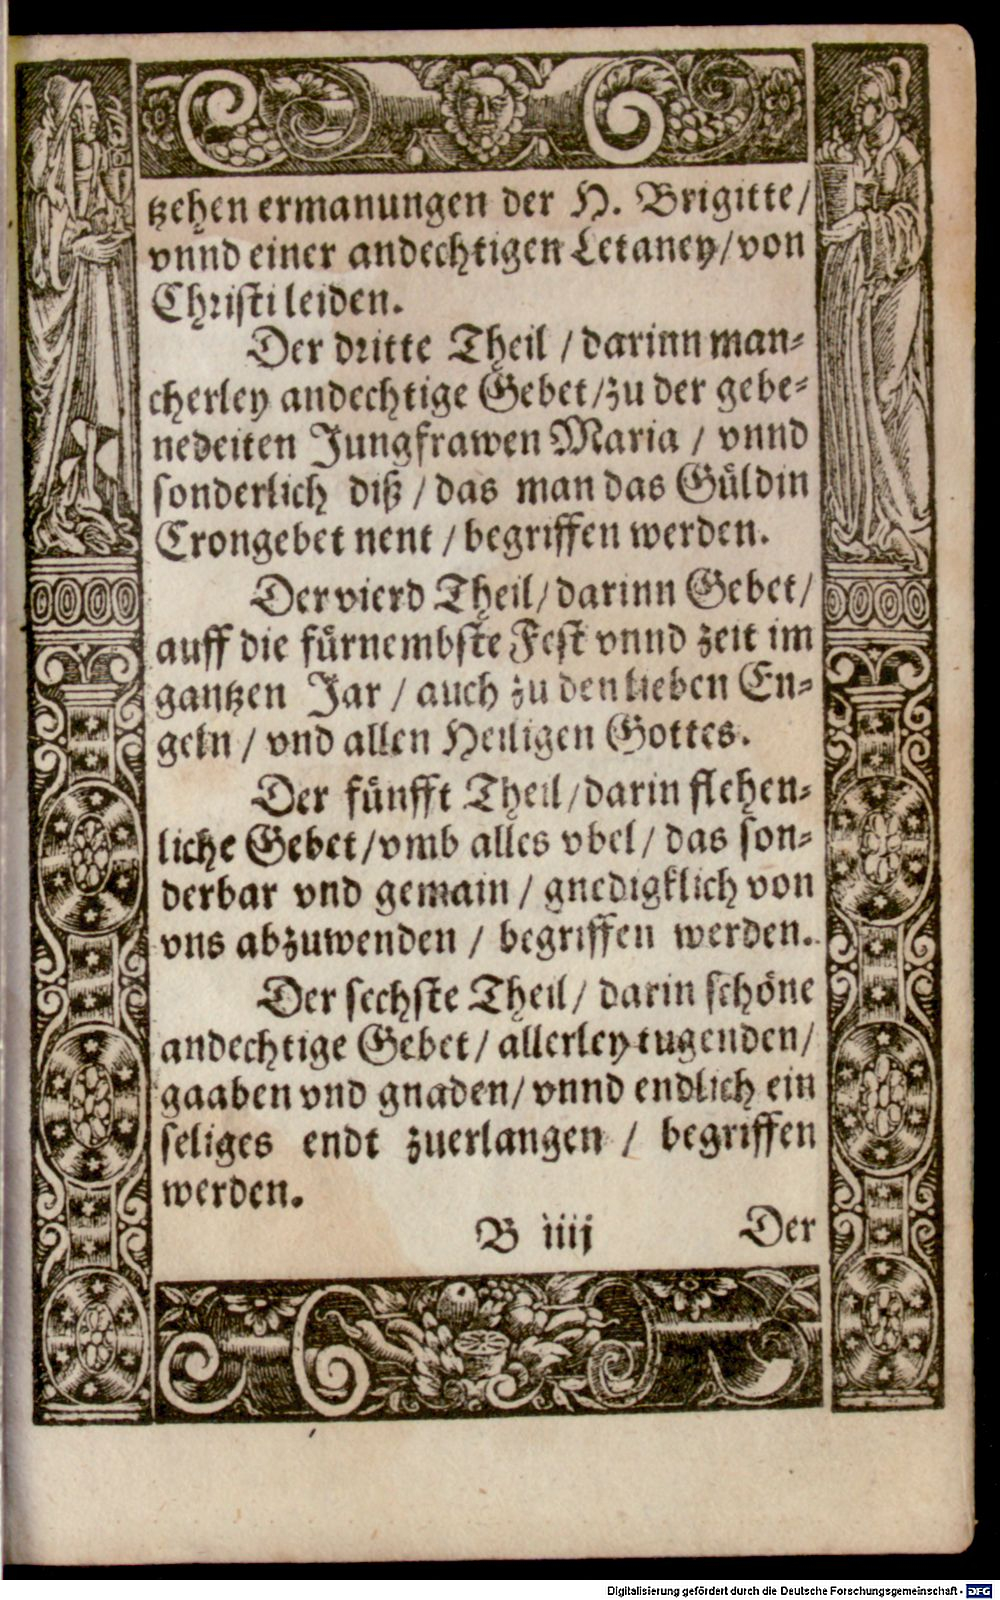 tzehen ermanungen der H. Brigitte/
vnnd einer andechtigen Letaney/von
Christi leiden.
Der dritte Theil / darinn man⸗
cherley andechtige Gebet/zu der gebe⸗
nedeiten Jungfrawen Maria / vnnd
sonderlich diß / das man das Güldin
Crongebet nent / begriffen werden.
Der vierd Theil/ darinn Gebet/
auff die fürnembste Fest vnnd zeit im
gantzen Jar / auch zu den lieben En⸗
geln / vnd allen Heiligen Gottes.
Der fünfft Theil/darin flehen⸗
liche Gebet/vmb alles vbel/ das son⸗
derbar vnd gemain / gnedigklich von
vns abzuwenden / begriffen werden.
Der sechste Theil/ darin schöne
andechtige Gebet/ allerley tugenden/
gaaben vnd gnaden/ vnnd endlich ein
seliges endt zuerlangen / begriffen
werden.
B iiij Der
Digitalisierung gefördert durch die Deutsche Forschungsgemeinschaft - DFG